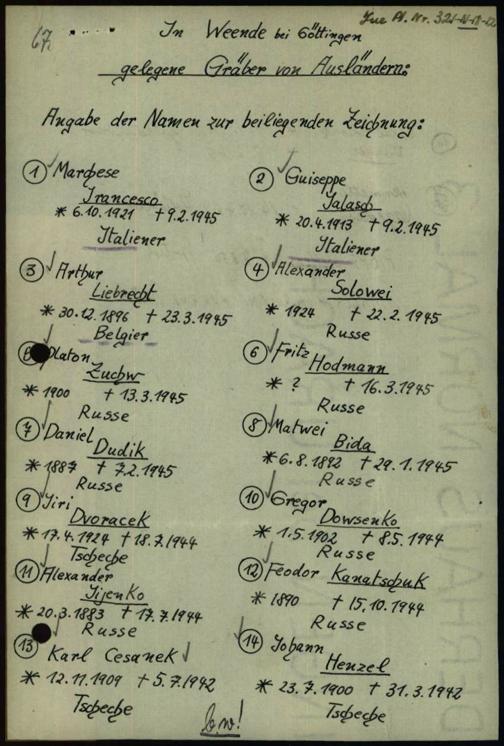 67.
In Weende bei Göttingen
gelegene Gräber von Ausländern:
Angabe der Namen zur beiliegenden Zeichnung:
1 Marchese
Francesco
* 6.10.1921 † 9.2.1945
Italiener
2 Guiseppe
Jalasch
* 20.4.1913 † 9.2.1945
Italiener
3 Arthur
Liebrecht
* 30.12.1896 † 23.3.1945
Belgier
4 Alexander
Solowei
* 1924 † 22.2.1945
Russe
5 Platon
Zuchw
* 1900 † 13.3.1945
Russe
6 Fritz
Hodmann
* ? † 16.3.1945
Russe
7 Daniel
Dudik
* 1887 † 7.2.1945
Russe
8 Matwei
Bida
* 6.8.1892 † 29.1.1945
Russe
9 Jiri
Dvoracek
* 17.4.1924 † 18.7.1944
Tscheche
10 Gregor
Dowsenko
* 1.5.1902 † 8.5.1944
Russe
11 Alexander
Jijenko
* 20.3.1883 † 17.7.1944
Russe
12 Feodor Kanatschuk
* 1890 † 15.10.1944
Russe
13
Karl Cesanek
* 12.11.1909 † 5.7.1942
Tscheche
14 Johann
Henzel
* 23.7.1900 † 31.3.1942
Tscheche
b.w!